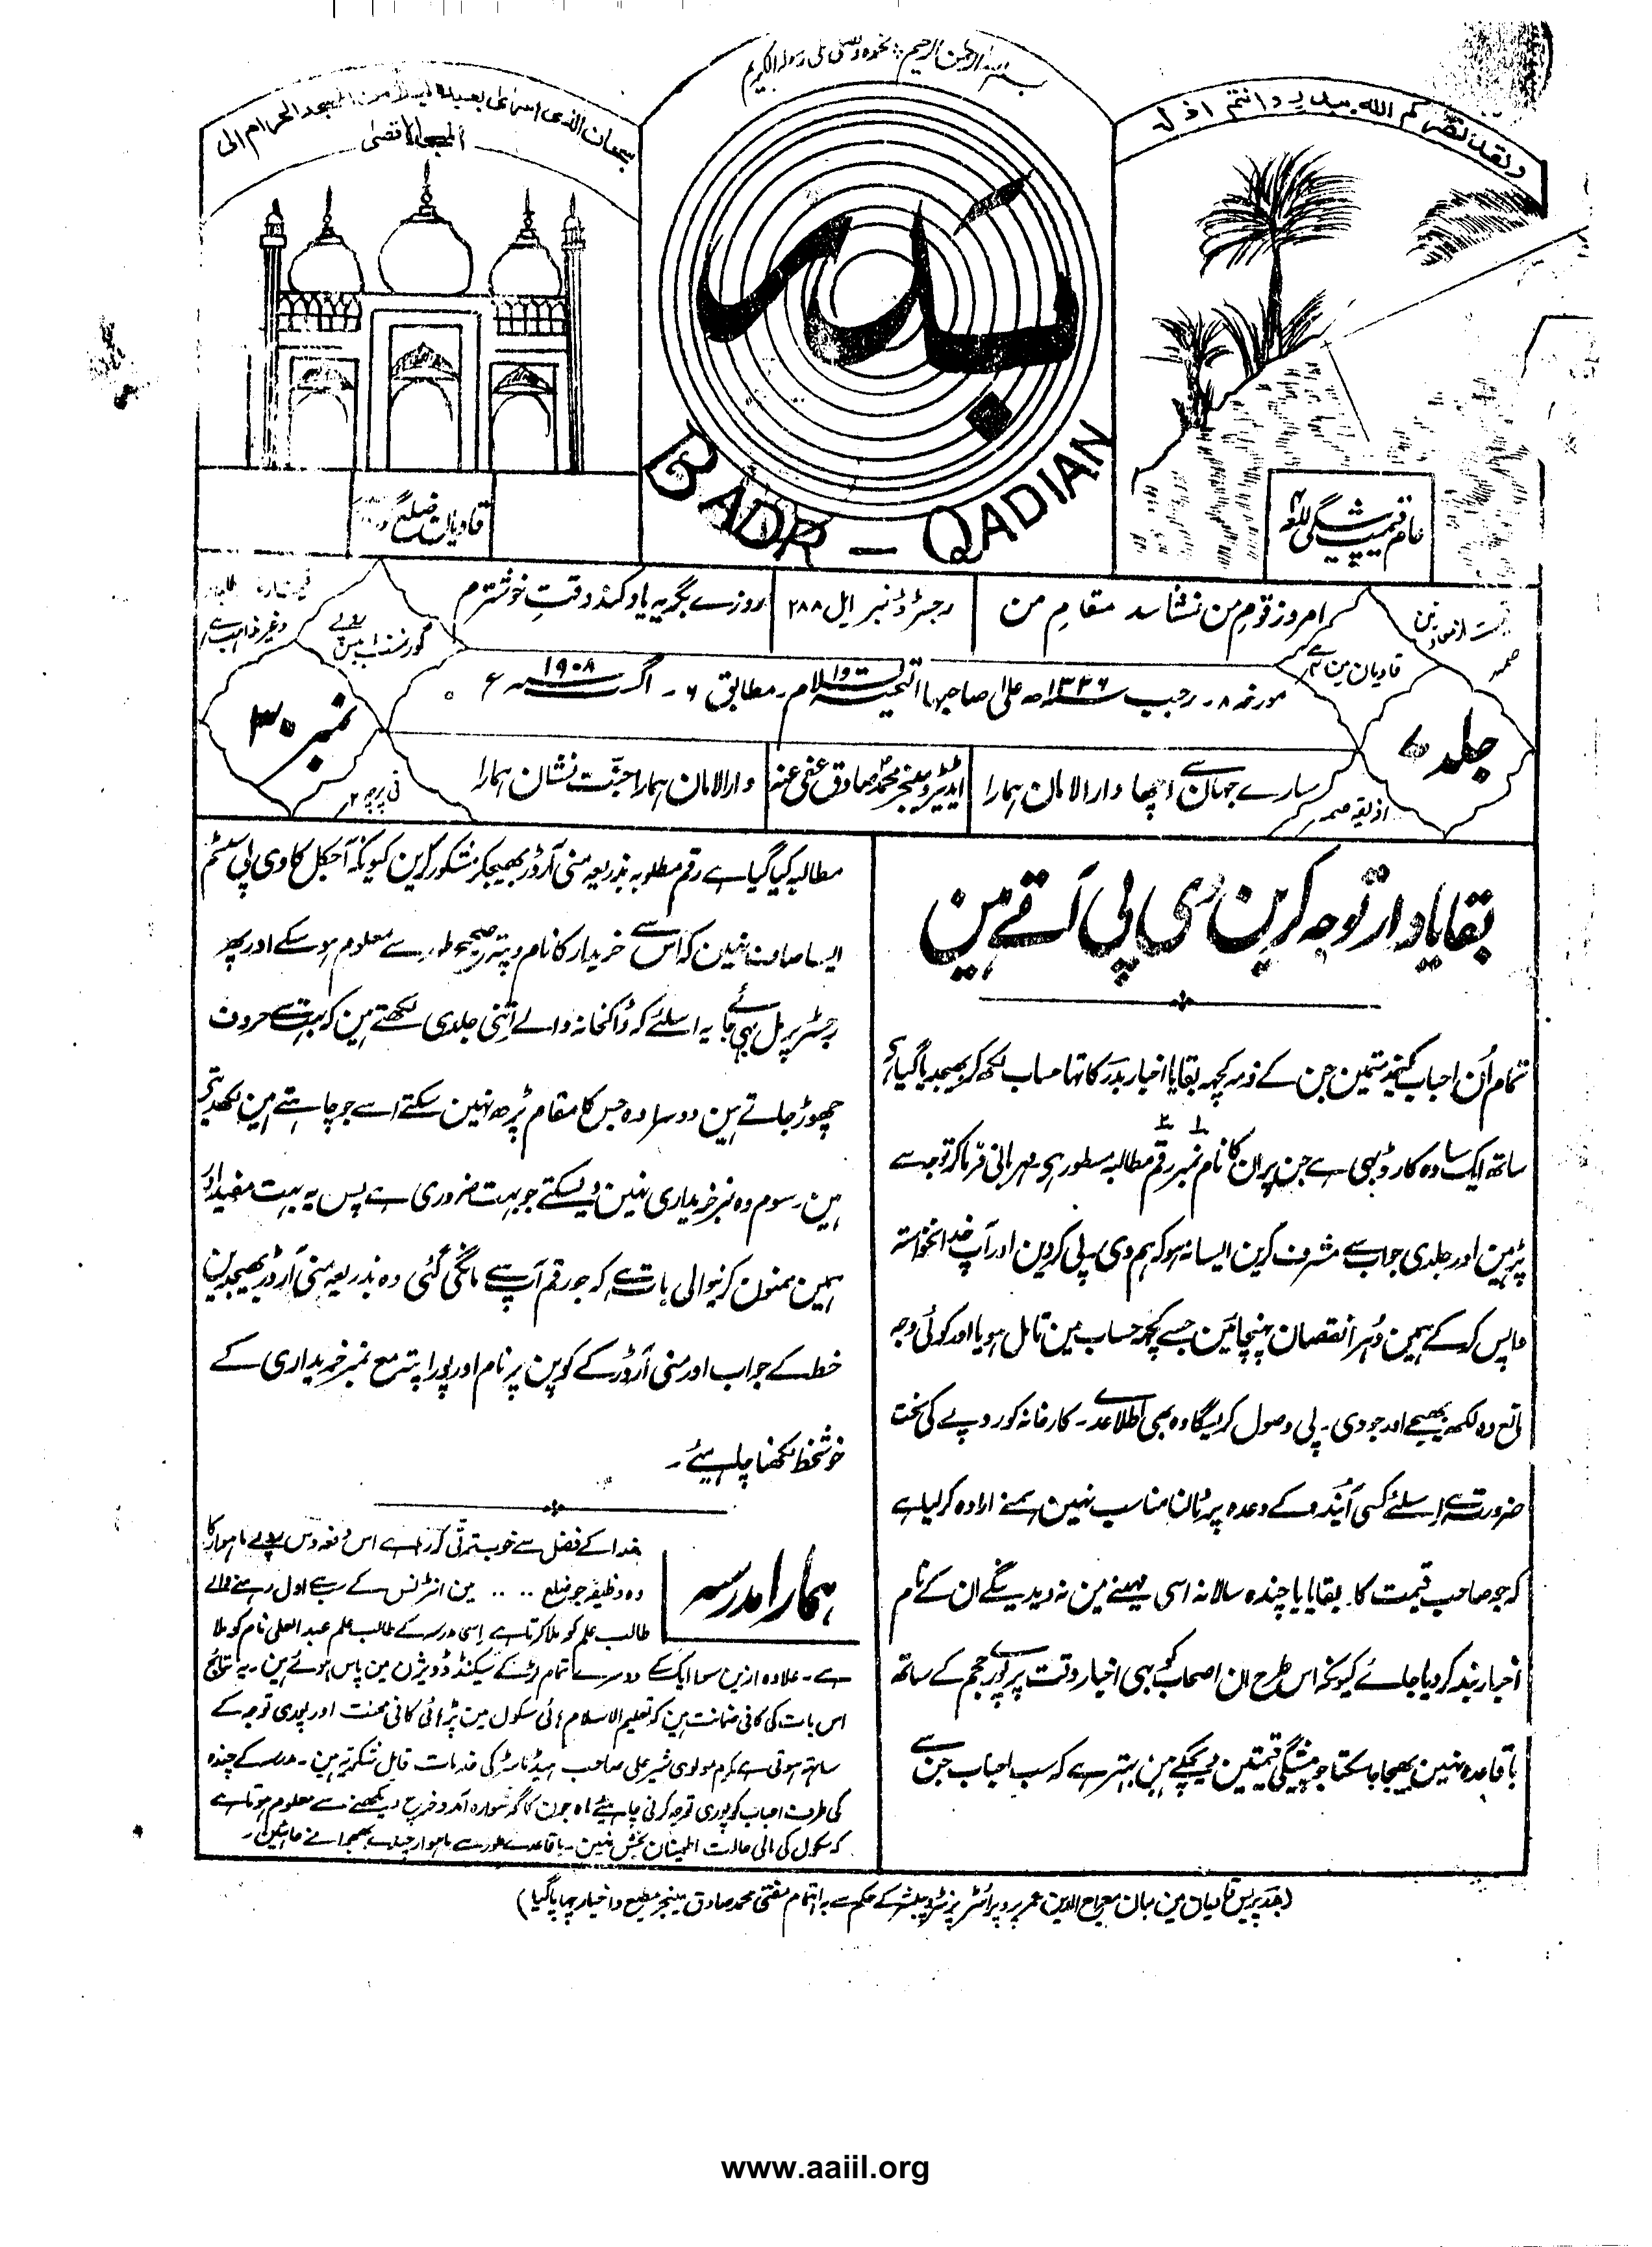 بسم اللہ الرحمن الرحیم نحمدہ ونصلی علی رسولہ الکریم
ولقد نصرکم اللہ ببدر وانتم اذلہ
سبحان الذی اسریٰ بعبدہ لیلا من المسجد الحرام الی
المسجد الاقصیٰ
بدر
BADR – QADIAN
عام قیمت پیشگی
قادیان ضلع
امروز قوم من نشناسد مقام من
رجسٹرڈ نمبر ایل ۲۸۸
روزے بگریہ یاد کند وقت خوشترم
قادیان مین
گورنمنٹ
مورخہ ۸۔ رجب ۱۳۲۶ھ علی صاحبہا التحیۃ والسلام۔ مطابق ۶۔ اگست ۱۹۰۸ء
جلد ۷
نمبر ۳۰
سارے جہان سے اچھا دارالامان ہمارا
ایڈیٹر و مینجر محمد صادق عفی عنہ
دارالامان ہمارا جنت نشان ہمارا
فی پرچہ ۲
بقایادار توجہ کرین وی پی آتے ہین
تمام اُن احباب کیخدمتمین جن کے ذمہ کچھ بقایا اخبار بدر کا تھا حساب لکھ کر بھیجدیا گیا ہے
ساتھ ایک سادہ کارڈ بھی ہے جن پر ان کا نام نمبر رقم مطالبہ مسطور ہے۔ مہربانی فرما کر توجہ سے
پڑہین اور جلدی جواب سے مشرف کرین ایسا نہ ہو کہ ہم وی۔ پی کردین اور آپ خدانخواستہ
واپس کر کے ہمین دُہرا نقصان پہنچائین جسے کچھ حساب مین تامل ہو یا اور کوئی وجہ
مانع وہ لکھ بھیجے اور جو وی۔ پی وصول کریگا وہ بھی اطلاع دے۔ کارخانہ کو روپے کی سخت
ضرورت ہے اسلئے کسی آیندہ کے وعدہ پر ٹالنا مناسب نہین ہمنے ارادہ کرلیا ہے
کہ جو صاحب قیمت کا بقایا یا چندہ سالانہ اسی مہینے مین نہ دیدینگے ان کے نام
اخبار بند کردیا جائے کیونکہ اس طرح ان اصحاب کو بھی اخبار وقت پر پورے حجم کے ساتھ
باقاعدہ نہین بھیجا جا سکتا جو پیشگی قیمتین دیچکے ہین بہتر ہے کہ سب احباب جن سے
مطالبہ کیا گیا ہے رقم مطلوبہ بذریعہ منی آرڈر بھیجکر مشکور کرین کیونکہ آجکل کا وی پی سسٹم
ایسا صاف نہین کہ اس سے خریدار کا نام و پتہ صحیح طور سے معلوم ہوسکے اور پھر
رجسٹر پر مل بھی جائے یہ اسلئے کہ ڈاکخانہ والے اتنی جلدی لکھتے ہین کہ بہت سے حروف
چھوڑ جاتے ہین دوسرا وہ جس کا مقام پڑھ نہین سکتے اسے جو چاہتے ہین لکھدیتے
ہین۔ سوم وہ نمبر خریداری نہین دیسکتے جو بہت ضروری ہے پس یہ بہت مفید اور
ہمین ممنون کرنیوالی بات ہے کہ جو رقم آپ سے مانگی گئی وہ بذریعہ منی آرڈر بھیجدین
خط کے جواب اور منی آرڈر کے کوپن پر نام اور پورا پتہ مع نمبر خریداری کے
خوشخط لکھنا چاہیئے۔
ہمارا مدرسہ
خدا کے فضل سے خوب ترقی کر رہا ہے اس دفعہ دس روپے ماہوار کا
وہ وظیفہ جو ضلع .... مین انٹرنس کے سب سے اول رہنے والے
طالب علم کو ملا کرتا ہے اسی مدرسہ کے طالب علم عبدالعلی نام کو ملا
ہے۔ علاوہ ازین سوا ایک کے دوسرے تمام لڑکے سیکنڈ ڈویژن مین پاس ہوئے ہین۔ یہ نتائج
اس بات کی کافی ضمانت ہین کہ تعلیم الاسلام ہائی سکول مین پڑہائی کافی محنت اور پوری توجہ کے
ساتھ ہوتی ہے مکرم مولوی شیر علی صاحب ہیڈ ماسٹر کی خدمات قابل شکریہ ہین۔ مدرسہ کے چندہ
کی طرف احباب کو پوری توجہ کرنی چاہیئے ماہ جون کا گوشوارہ آمد و خرچ دیکھنے سے معلوم ہوتا ہے
کہ سکول کی مالی حالت اطمینان بخش نہین۔ باقاعدہ طور سے ماہوار چندے بھجوانے چاہئین۔
(بدر پریس قادیان مین میان معراج الدین عمر پروپرائٹر پرنٹر و پبلشر کے حکم سے بہ اہتمام مفتی محمد صادق مینجر مطبع و اخبار چھاپا گیا)
www.aaiil.org